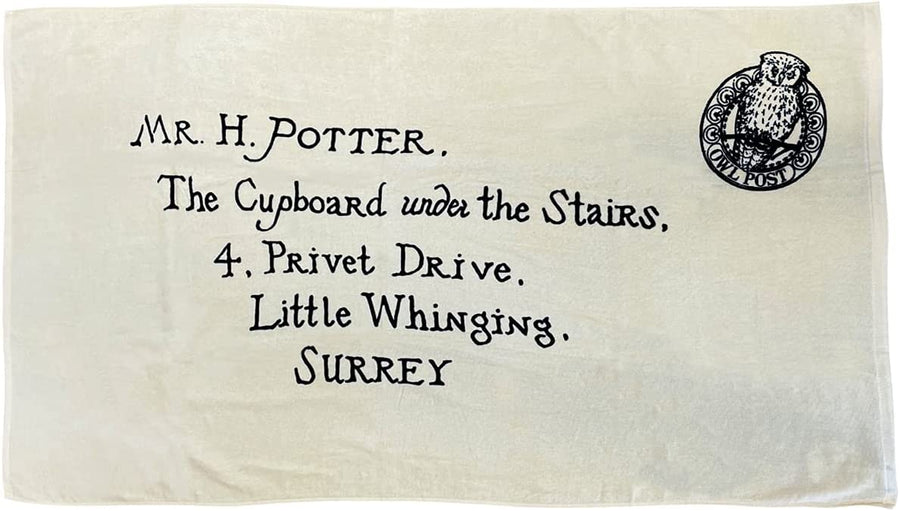 Mr. H. Potter.
The Cupboard under the Stairs,
4, Privet Drive.
Little Whinging.
SURREY
OWL POST